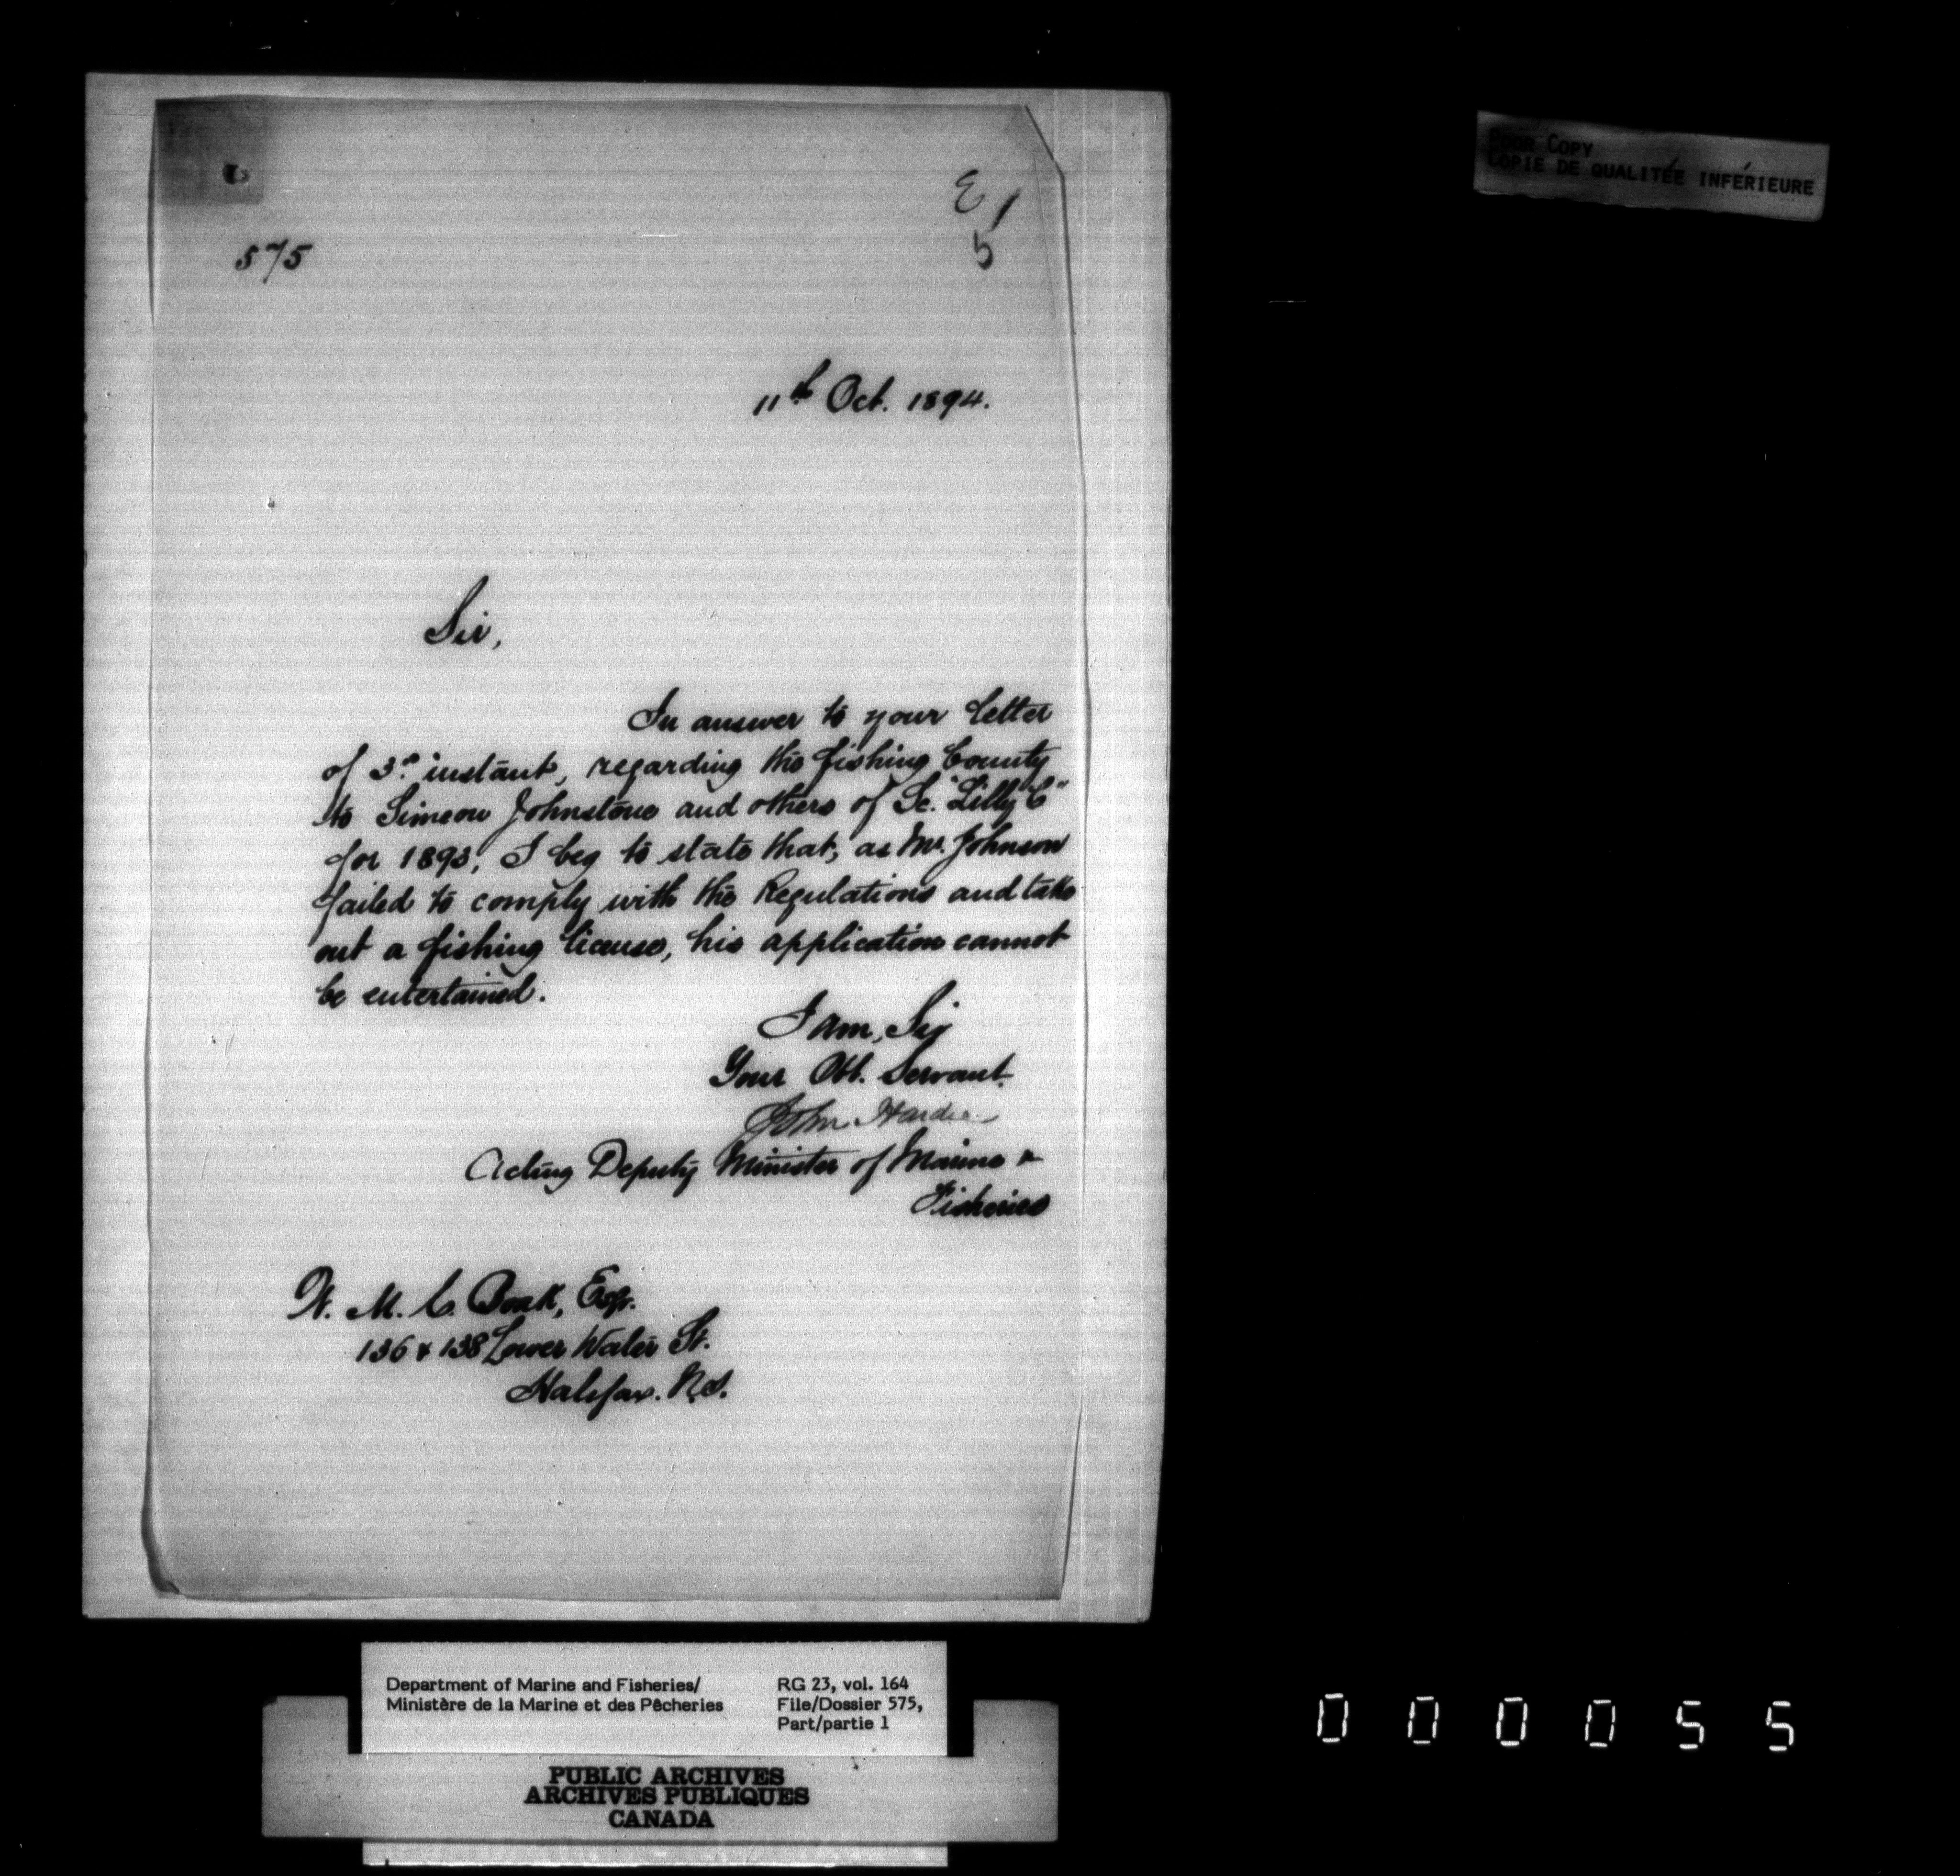 E 1
5
575
11th Oct. 1894.
Sir,
In answer to your letter
of 3rd instant, regarding the fishing Bounty
to Simeon Johnstone and others of Sc. "Lilly C"
for 1893, I beg to state that, as Mr. Johnson
failed to comply with the Regulations and take
out a fishing license, his application cannot
be entertained.
I am, Sir
Your Obt. Servant.
John Hardie
Acting Deputy Minister of Marine &
Fisheries
W. M. C. Boak, Esqr.
136 & 138 Lower Water St.
Halifax. N.S.
POOR COPY
COPIE DE QUALITÉE INFÉRIEURE
Department of Marine and Fisheries/
Ministère de la Marine et des Pêcheries
RG 23, vol. 164
File/Dossier 575,
Part/partie 1
PUBLIC ARCHIVES
ARCHIVES PUBLIQUES
CANADA
000055